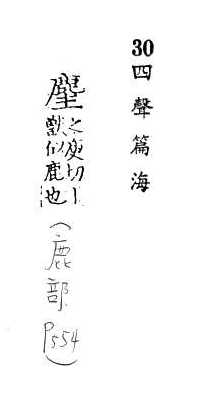 30 四聲篇海
麈
之庾切
獸似鹿也
(鹿部 P554)